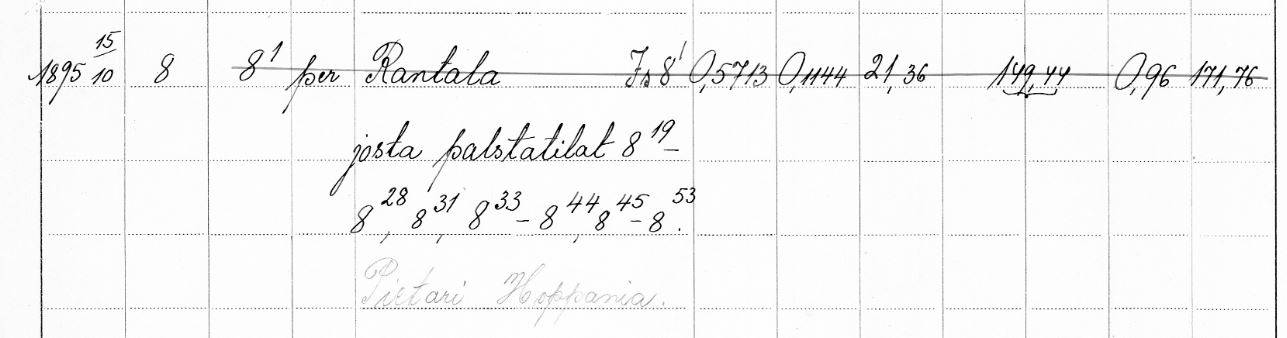 1895 15/10 8 8¹ per Rantala Is 8¹ 0,5713 0,1144 21,36 149,44 0,96 171,76
josta palstatilat 8¹⁹–
8²⁸, 8³¹, 8³³– 8⁴⁴, 8⁴⁵–8⁵³.
Pietari Hoppania.